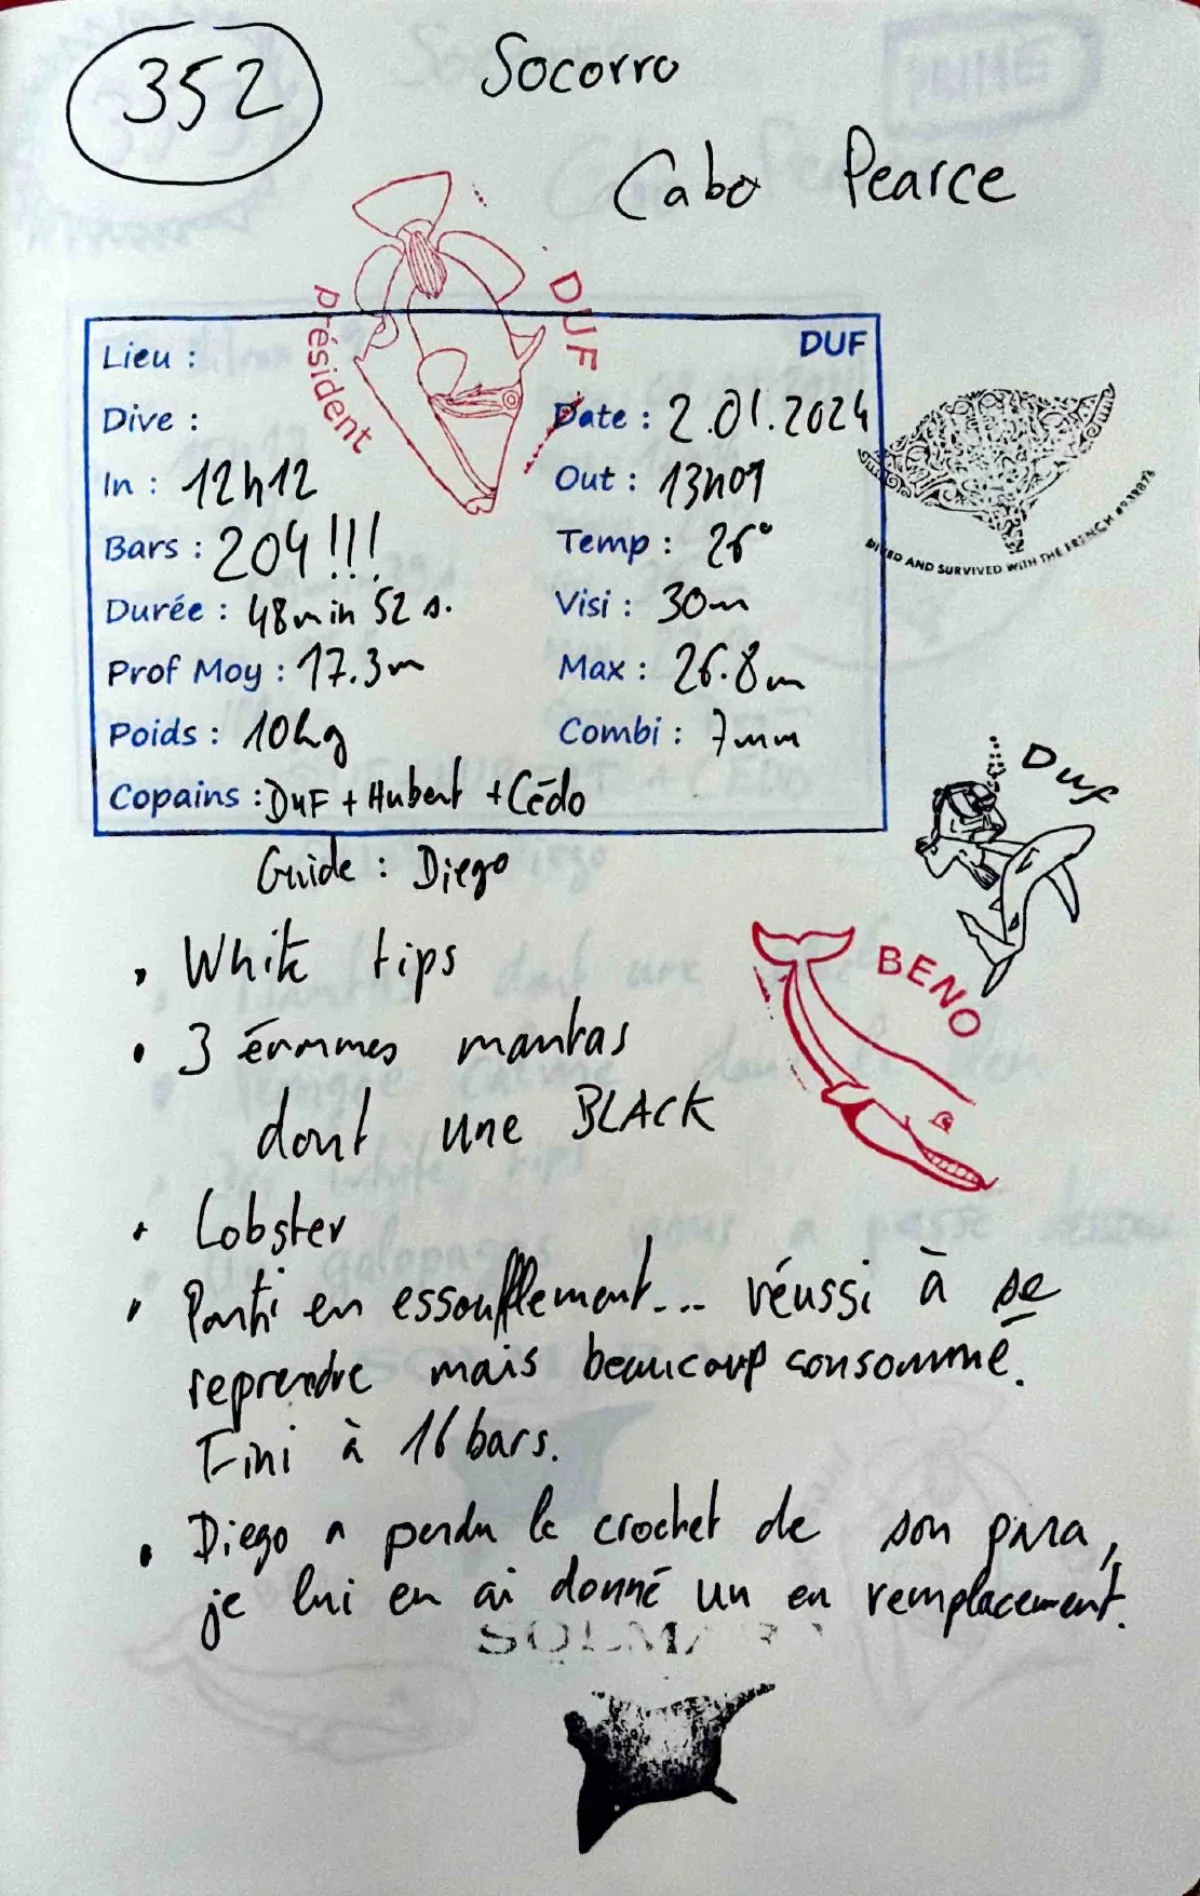 352
Socorro
Cabo Pearce
président
DUF
DUF
Lieu :
Dive :
Date : 2.01.2024
In : 12h12
Out : 13h01
Bars : 204 !!!
Temp : 26°
Durée : 48min 52 s.
Visi : 30m
Prof Moy : 17.3m
Max : 26.8m
Poids : 10kg
Combi : 7mm
Copains : DUF + Hubert + Cédo
DIVED AND SURVIVED WITH THE FRENCH
Guide : Diego
Duf
BENO
• White tips
• 3 énormes mantas
dont une BLACK
• Lobster
• Parti en essoufflement... réussi à se
reprendre mais beaucoup consommé.
Fini à 16 bars.
• Diego a perdu le crochet de son para,
je lui en ai donné un en remplacement.